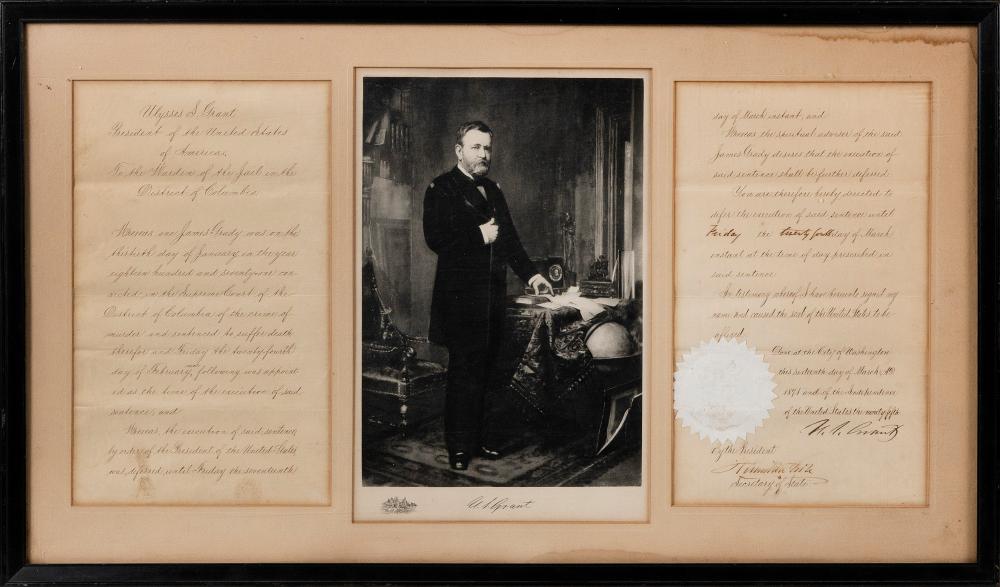 Ulysses S. Grant,
President of the United States
of America,
To the Warden of the Jail in the
District of Columbia
Whereas one James Grady was on the
thirtieth day of January, in the year
eighteen hundred and seventy-one con-
victed, in the Supreme Court of the
District of Columbia of the crime of
murder and sentenced to suffer death
therefor and Friday the twenty-fourth
day of February, following was appoint
ed as the time of the execution of said
sentence; and
Whereas, the execution of said sentence,
by order of the President of the United States,
was deferred until Friday the seventeenth
U.S. Grant
day of March instant; and
Whereas the spiritual adviser of the said
James Grady desires that the execution of
said sentence shall be further deferred
You are therefore hereby directed to
defer the execution of said sentence until
Friday the twenty fourth day of March
instant at the time of day prescribed in
said sentence.
In testimony whereof I have hereunto signed my
name and caused the seal of the United States to be
affixed.
Done at the City of Washington
this sixteenth day of March A.D.
1871 and of the Independence
of the United States the ninety-fifth
U. S. Grant
By the President
Hamilton Fish
Secretary of State